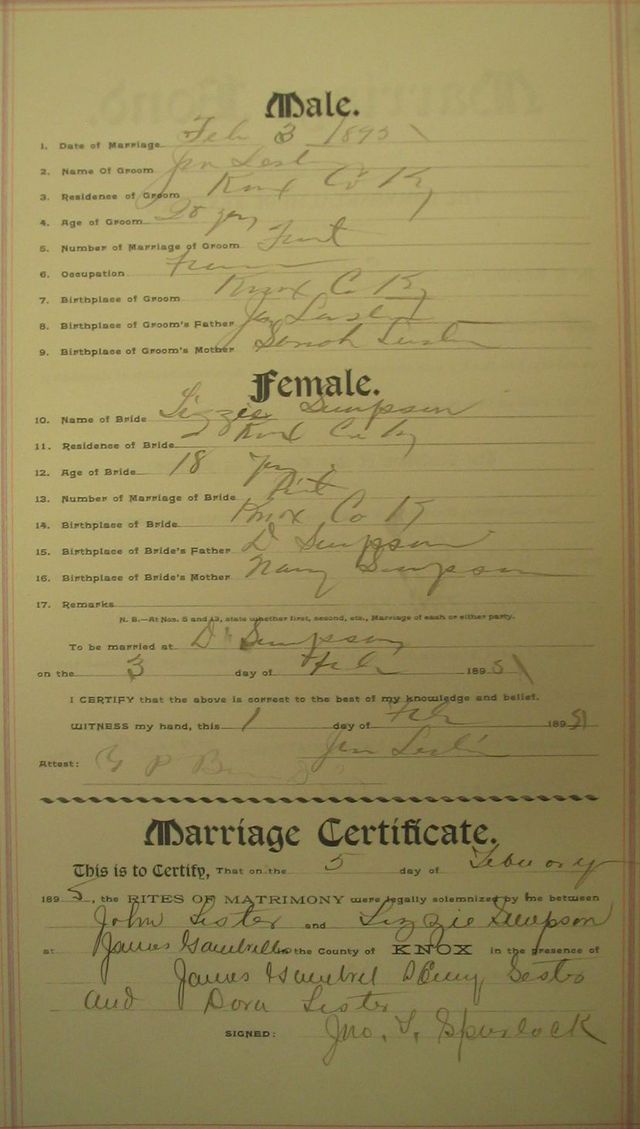 Male.
1. Date of Marriage Feb 3 1895
2. Name Of Groom Jno
3. Residence of Groom Knox Co Ky
4. Age of Groom 28 yrs
5. Number of Marriage of Groom First
6. Occupation
7. Birthplace of Groom Knox Co Ky
8. Birthplace of Groom's Father
9. Birthplace of Groom's Mother Sarah
Female.
10. Name of Bride Lizzie Simpson
11. Residence of Bride Knox Co Ky
12. Age of Bride 18 yrs
13. Number of Marriage of Bride First
14. Birthplace of Bride Knox Co Ky
15. Birthplace of Bride's Father D Simpson
16. Birthplace of Bride's Mother Nancy Simpson
17. Remarks
N. B.—At Nos. 5 and 13, state whether first, second, etc., Marriage of each or either party.
To be married at D Simpson
on the 3 day of Feb 1895
I CERTIFY that the above is correct to the best of my knowledge and belief.
WITNESS my hand, this 1 day of Feb 1895
Jno
Attest: G P
Marriage Certificate.
This is to Certify, That on the 5 day of
1895, the RITES OF MATRIMONY were legally solemnized by me between
John Lister and Lizzie Simpson
at James Gambrells in the County of KNOX in the presence of
James Gambrel
and Dora Lister
SIGNED: Jno. T. Spurlock